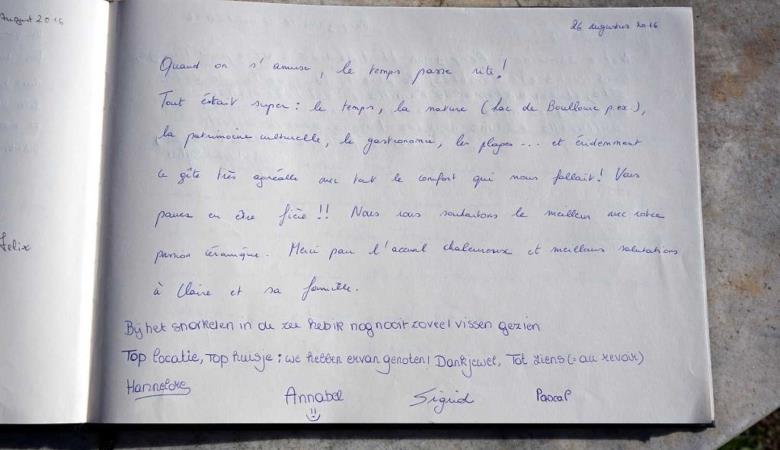 August 2016
26 augustus 2016
Quand on s'amuse, le temps passe vite!
Tout était super: le temps, la nature (Lac de Boullouc p.ex.),
la patrimoine culturelle, le gastronomie, les plages... et évidemment
ce gîte très agréable avec tout le confort qui nous fallait! Vous
pouvez en être fière!! Nous vous souhaitons le meilleur avec votre
passion céramique. Merci pour l'accueil chaleureux et meilleurs salutations
à Claire et sa famille.
Felix
Bij het snorkelen in de zee heb ik nog nooit zoveel vissen gezien
Top locatie, Top huisje: we hebben ervan genoten! Dankjewel, Tot ziens (= au revoir)
Hannelore
Annabel Sigrid Pascal